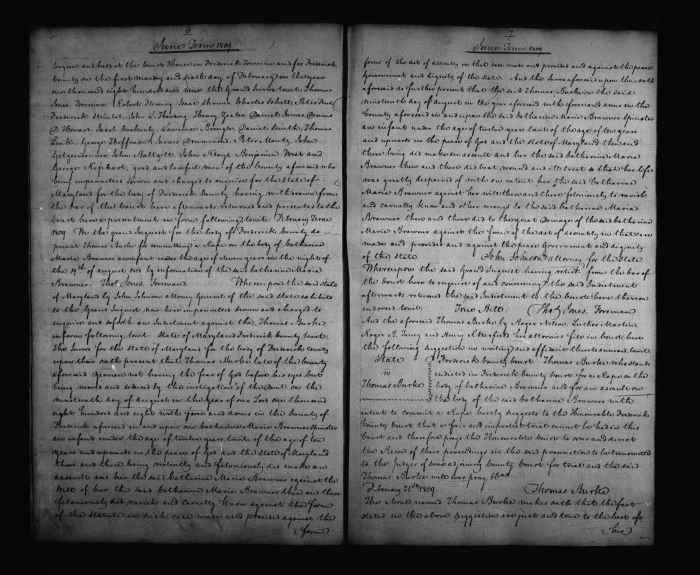 6
June Term 1809.
begun and held at the Court House in Frederick Town in and for Frederick
County on the first monday and sixth day of February in the year
one thousand eight hundred and nine the Grand Jurors to wit Thomas
Jones, Foreman Robert Fleming Isaac Shriver, Charles
Frederick John L. Henry Daniel James, Dennis
D. Howard, Jacob Lawrence Daniel Smith, Thomas
George Hoffman, James Drummond, Peter Mantz, John
John Benjamin and
George good and lawful men of the County aforesaid who
being impannelled sworn and charged to enquire for the State of
Maryland for the body of Frederick County having withdrawn from
the bar of the Court here afterwards returned and presented to the
Court here a presentment in form following to wit: February Term
1809. We the grand Inquest for the body of Frederick County do
present Thomas Burke for committing a Rape on the body of Catharine
Maria Brawner an infant under the age of years in the night of
the 19th of August by information of the said Catharine Maria
Brawner. Thos. Jones, Foreman Whereupon the said State
of Maryland by John Johnson attorney General of the said State exhibits
to the Grand Inquest now here impannelled sworn and charged to
enquire and so forth an Indictment against the Thomas Burke
in form following, to wit. State of Maryland Frederick County to wit:
The Jurors for the State of Maryland for the body of Frederick County
upon their oath present that Thomas Burke late of the County
aforesaid yeoman not having the fear of God before his eyes but
being moved and seduced by the instigation of the Devil on the
nineteenth day of august in the year of our Lord one thousand
eight hundred and eight with force and arms in the County of
Frederick aforesaid in and upon one Catharine Maria Brawner Spinster
an infant under the age of twelve years to wit of the age of ten
years and upwards in the peace of God and the State of Maryland
then and there being violently and feloniously did make an
assault and her the said Catharine Maria Brawner against the
Will of her the said Catharine Maria Brawner then and there
feloniously did ravish and carnally know against the form
of the Statute in such case made and provided against the
(form
7
June Term 1809
form of the act of assembly in that case made and provided and against the peace
Government and dignity of the state. And the Jurors aforesaid upon their oath
aforesaid do further present that the said Thomas Burke on the said
nineteenth day of august in the year aforesaid with force and arms in the
County aforesaid in and upon the said Catharine Maria Brawner Spinster
an infant under the age of twelve years to wit of the age of ten years
and upwards in the peace of God and the State of Maryland then and
there being did make an assault and her the said Catharine Maria
Brawner then and there did beat wound and ill treat so that her life
was greatly despaired of with an intent her the said Catharine
Maria Brawner against her will then and there feloniously to ravish
and carnally know and other wrongs to the said Catharine Maria
Brawner then and there did to the great damage of the said Catharine
Maria Brawner against the form of the act of assembly in that case
made and provided and against the peace Government and dignity
of the state. John Johnson attorney for the State
Whereupon the said Grand Inquest having retired from the bar of
the Court here to enquire of and concerning the said Indictment
afterwards returned the said Indictment to the Court here thereon
endorsed to wit: True Bill. Thos. Jones, Foreman
And the aforesaid Thomas Burke by Roger Nelson Luther Martin
Roger B. Taney and his attornies files in Court here
the following suggestion in writing and affidavit thereto annexed to wit.
State Frederick County Court Thomas Burke who stands
vs indicted in Frederick County Court for a Rape on the
Thomas Burke body of Catharine Brawner and for an assault on
the body of the said Catharine Brawner with
intent to commit a Rape hereby suggests to the Honourable Frederick
County Court that a fair and impartial trial cannot be had in this
Court and therefore prays the Honourable Court to order and direct
the Record of their proceedings in the said prosecution to be transmitted
to the Judges of some adjoining County Court for trial and the said
Thomas Burke will ever pray &c.
February 21st 1809. Thomas Burke
The above named Thomas Burke makes oath that the facts
stated in the above suggestion are just and true to the best of
(his